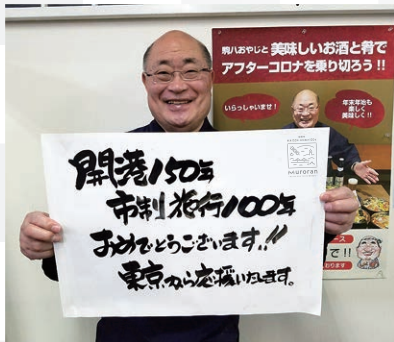 腕八おやじと美味しいお酒と肴で
アフターコロナを乗り切ろう!!
いらっしゃいませ!
年末年始も
楽しく
美味しく!!
muroran
開港150年
市制施行100年
おめでとうございます!!
東京から応援いたします。
で!!